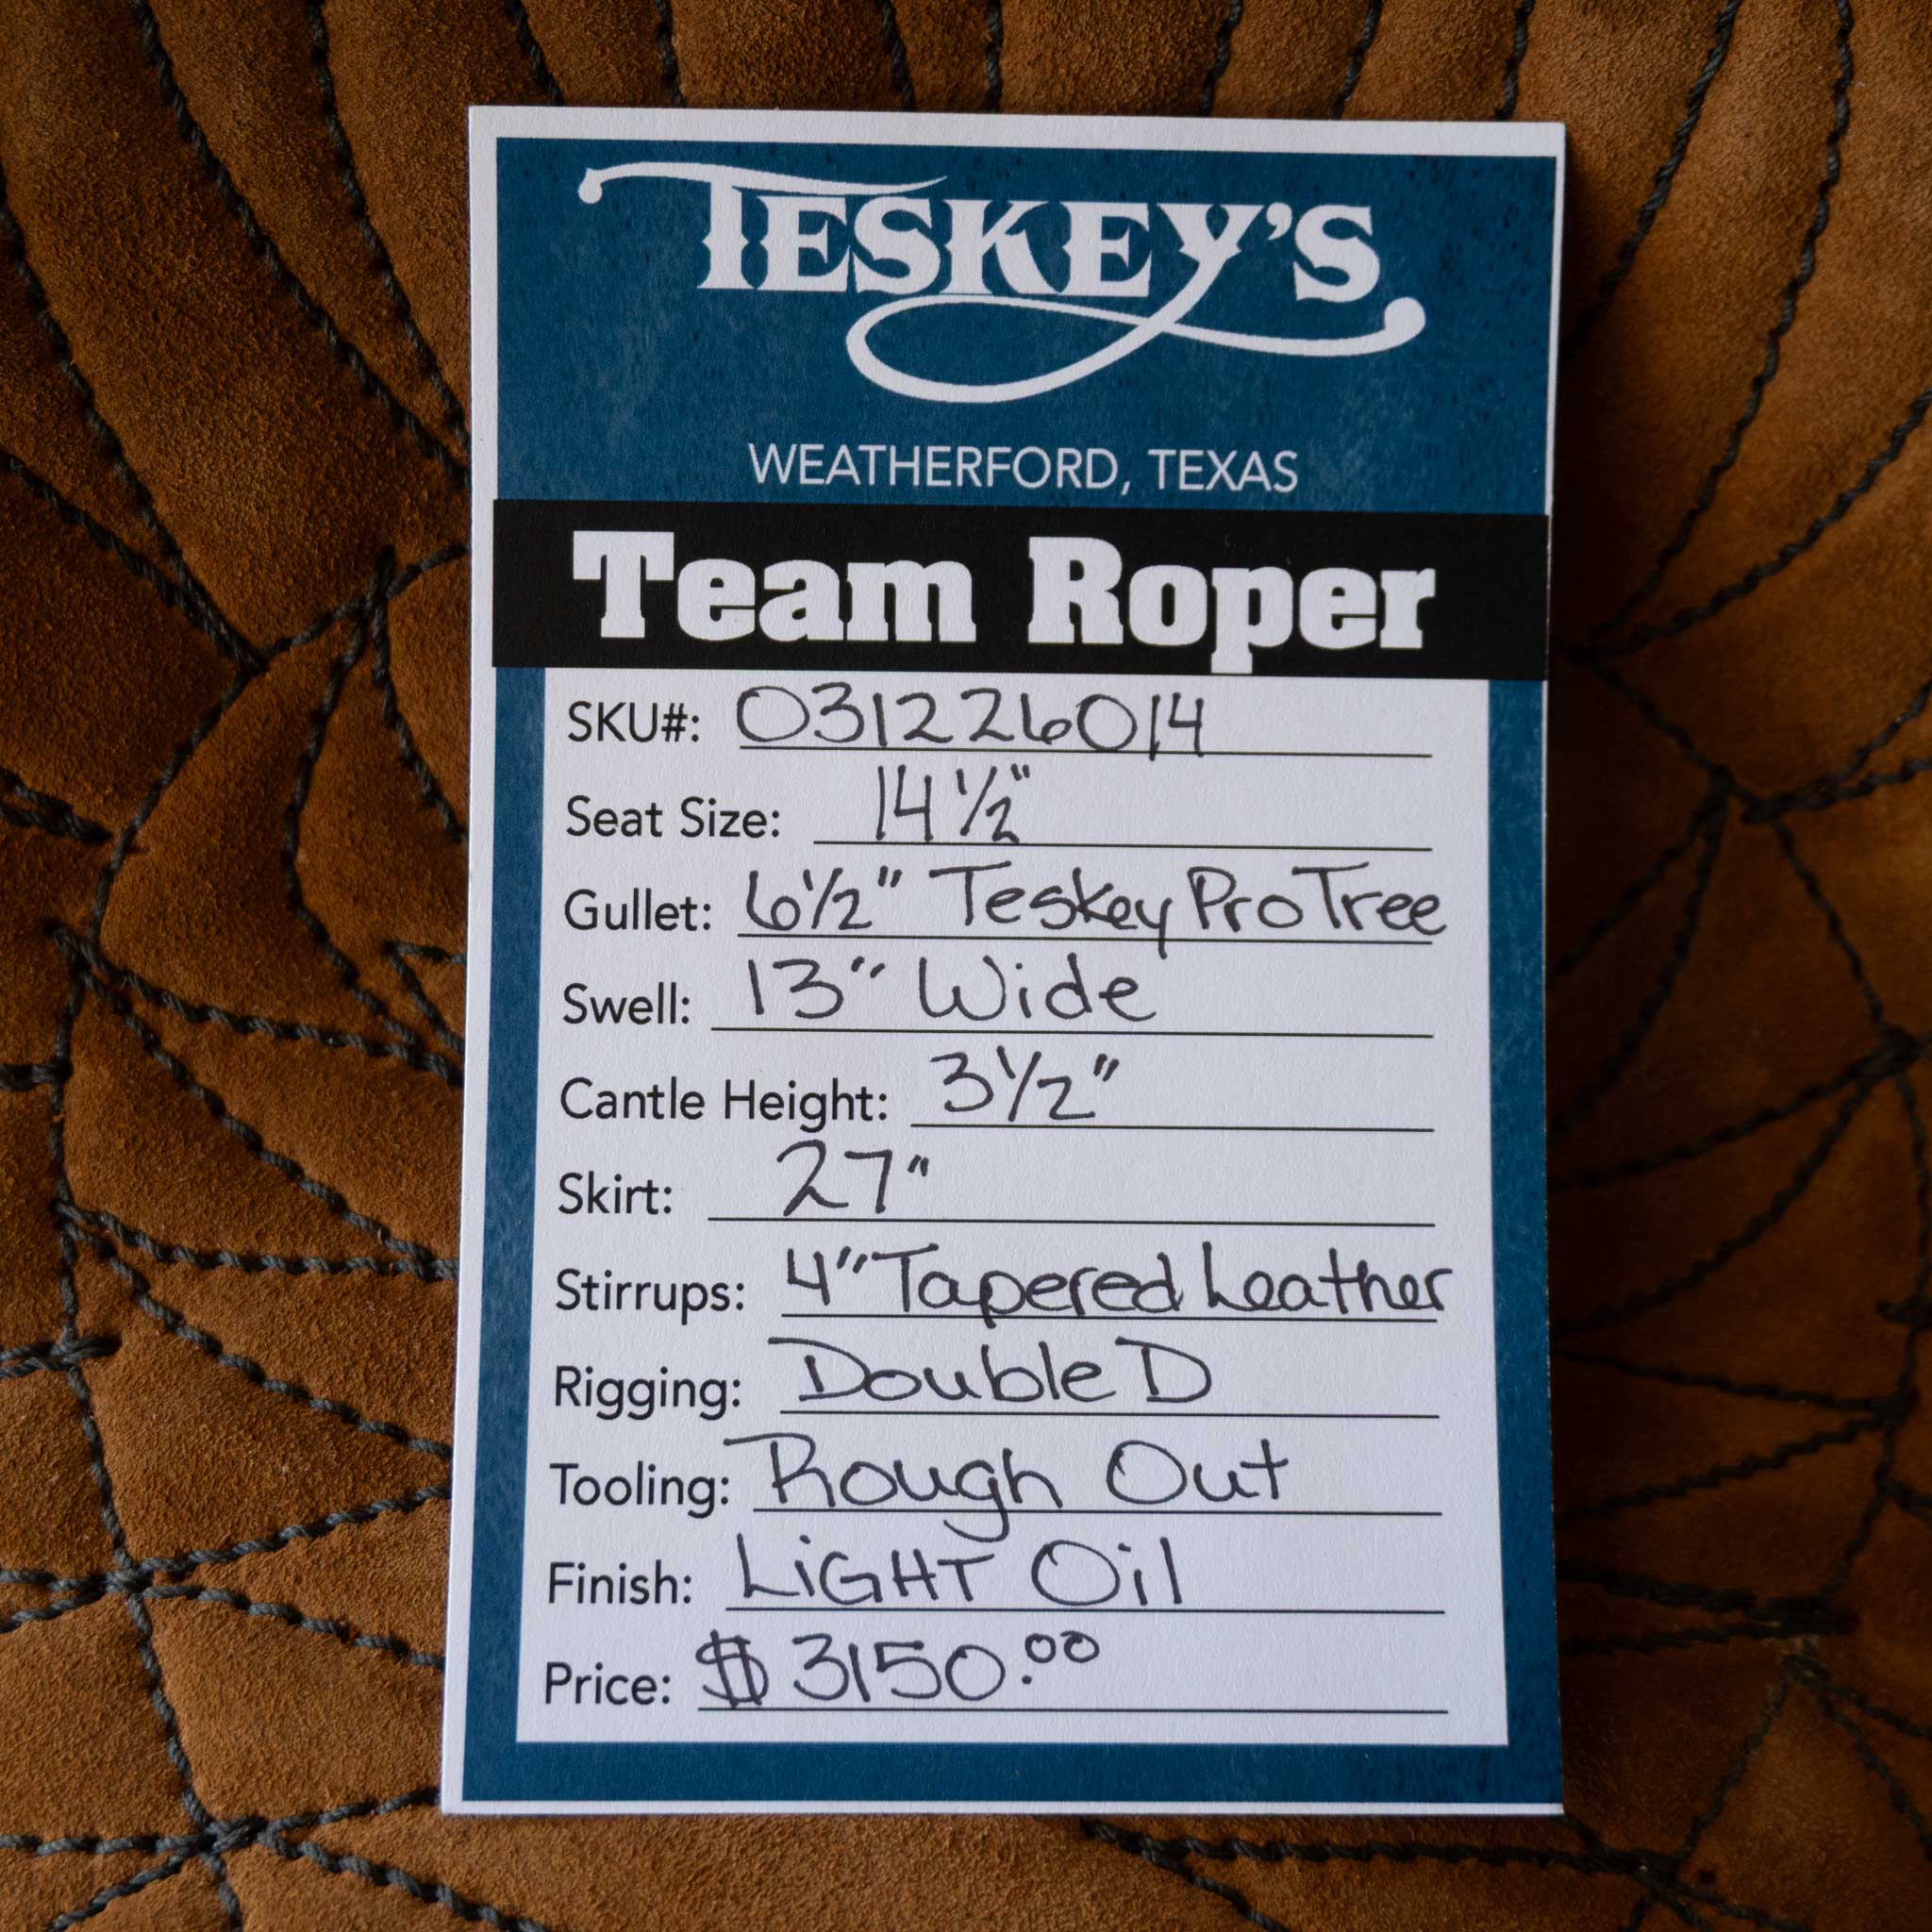 TESKEY'S
WEATHERFORD, TEXAS
Team Roper
SKU#: 031226014
Seat Size: 14 1/2"
Gullet: 6 1/2" Teskey Pro Tree
Swell: 13" Wide
Cantle Height: 3 1/2"
Skirt: 27"
Stirrups: 4" Tapered Leather
Rigging: Double D
Tooling: Rough Out
Finish: LiGHT Oil
Price: $ 3150.00